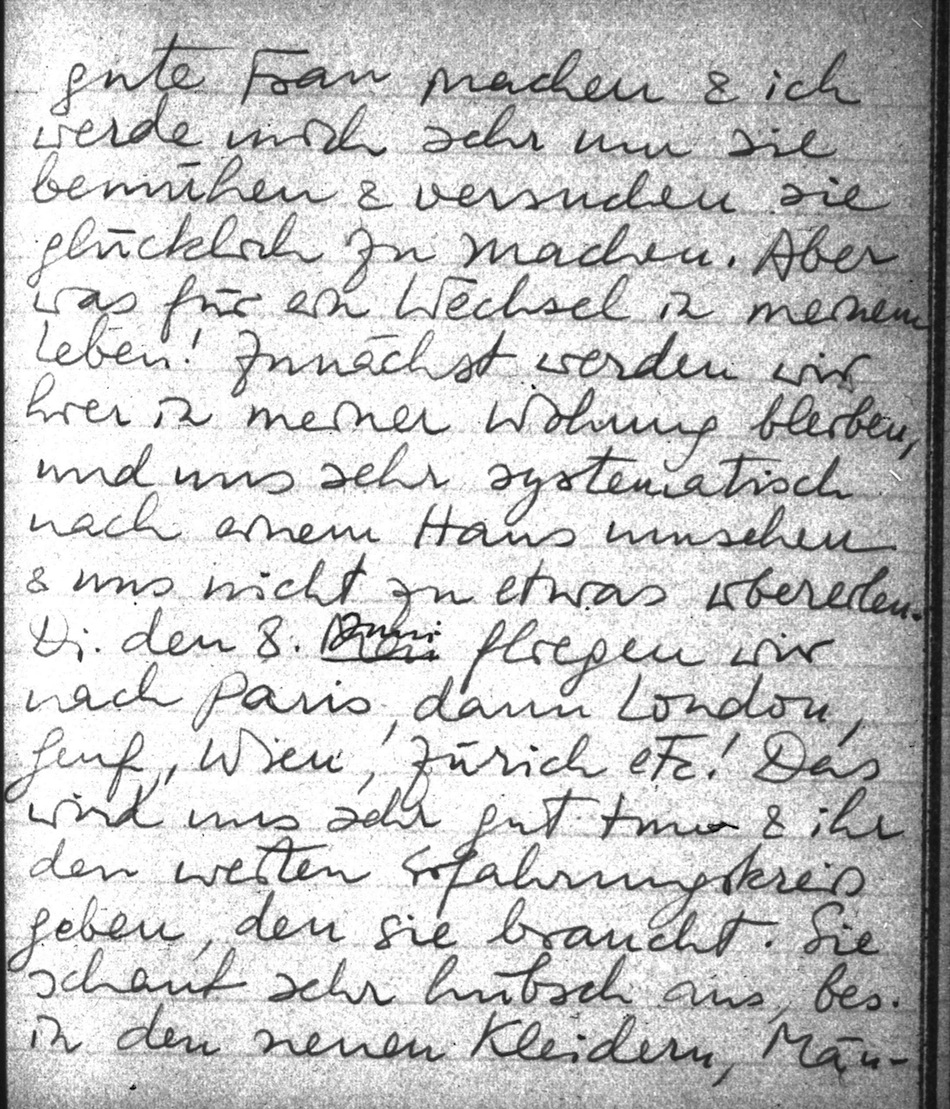 gute Frau machen & ich
werde mich sehr um sie
bemühen & versuchen sie
glücklich zu machen. Aber
was für ein Wechsel in meinem
Leben! Zunächst werden wir
hier in meiner Wohnung bleiben,
und uns sehr systematisch
nach einem Haus umsehen
& uns nicht zu etwas übereilen.
Di. den 8. Juni fliegen wir
nach Paris, dann London,
Genf, Wien, Zürich etc! Das
wird uns sehr gut tun & ihr
den weiten Erfahrungskreis
geben, den sie braucht. Sie
schaut sehr hübsch aus, bes.
in den neuen Kleidern, Män-